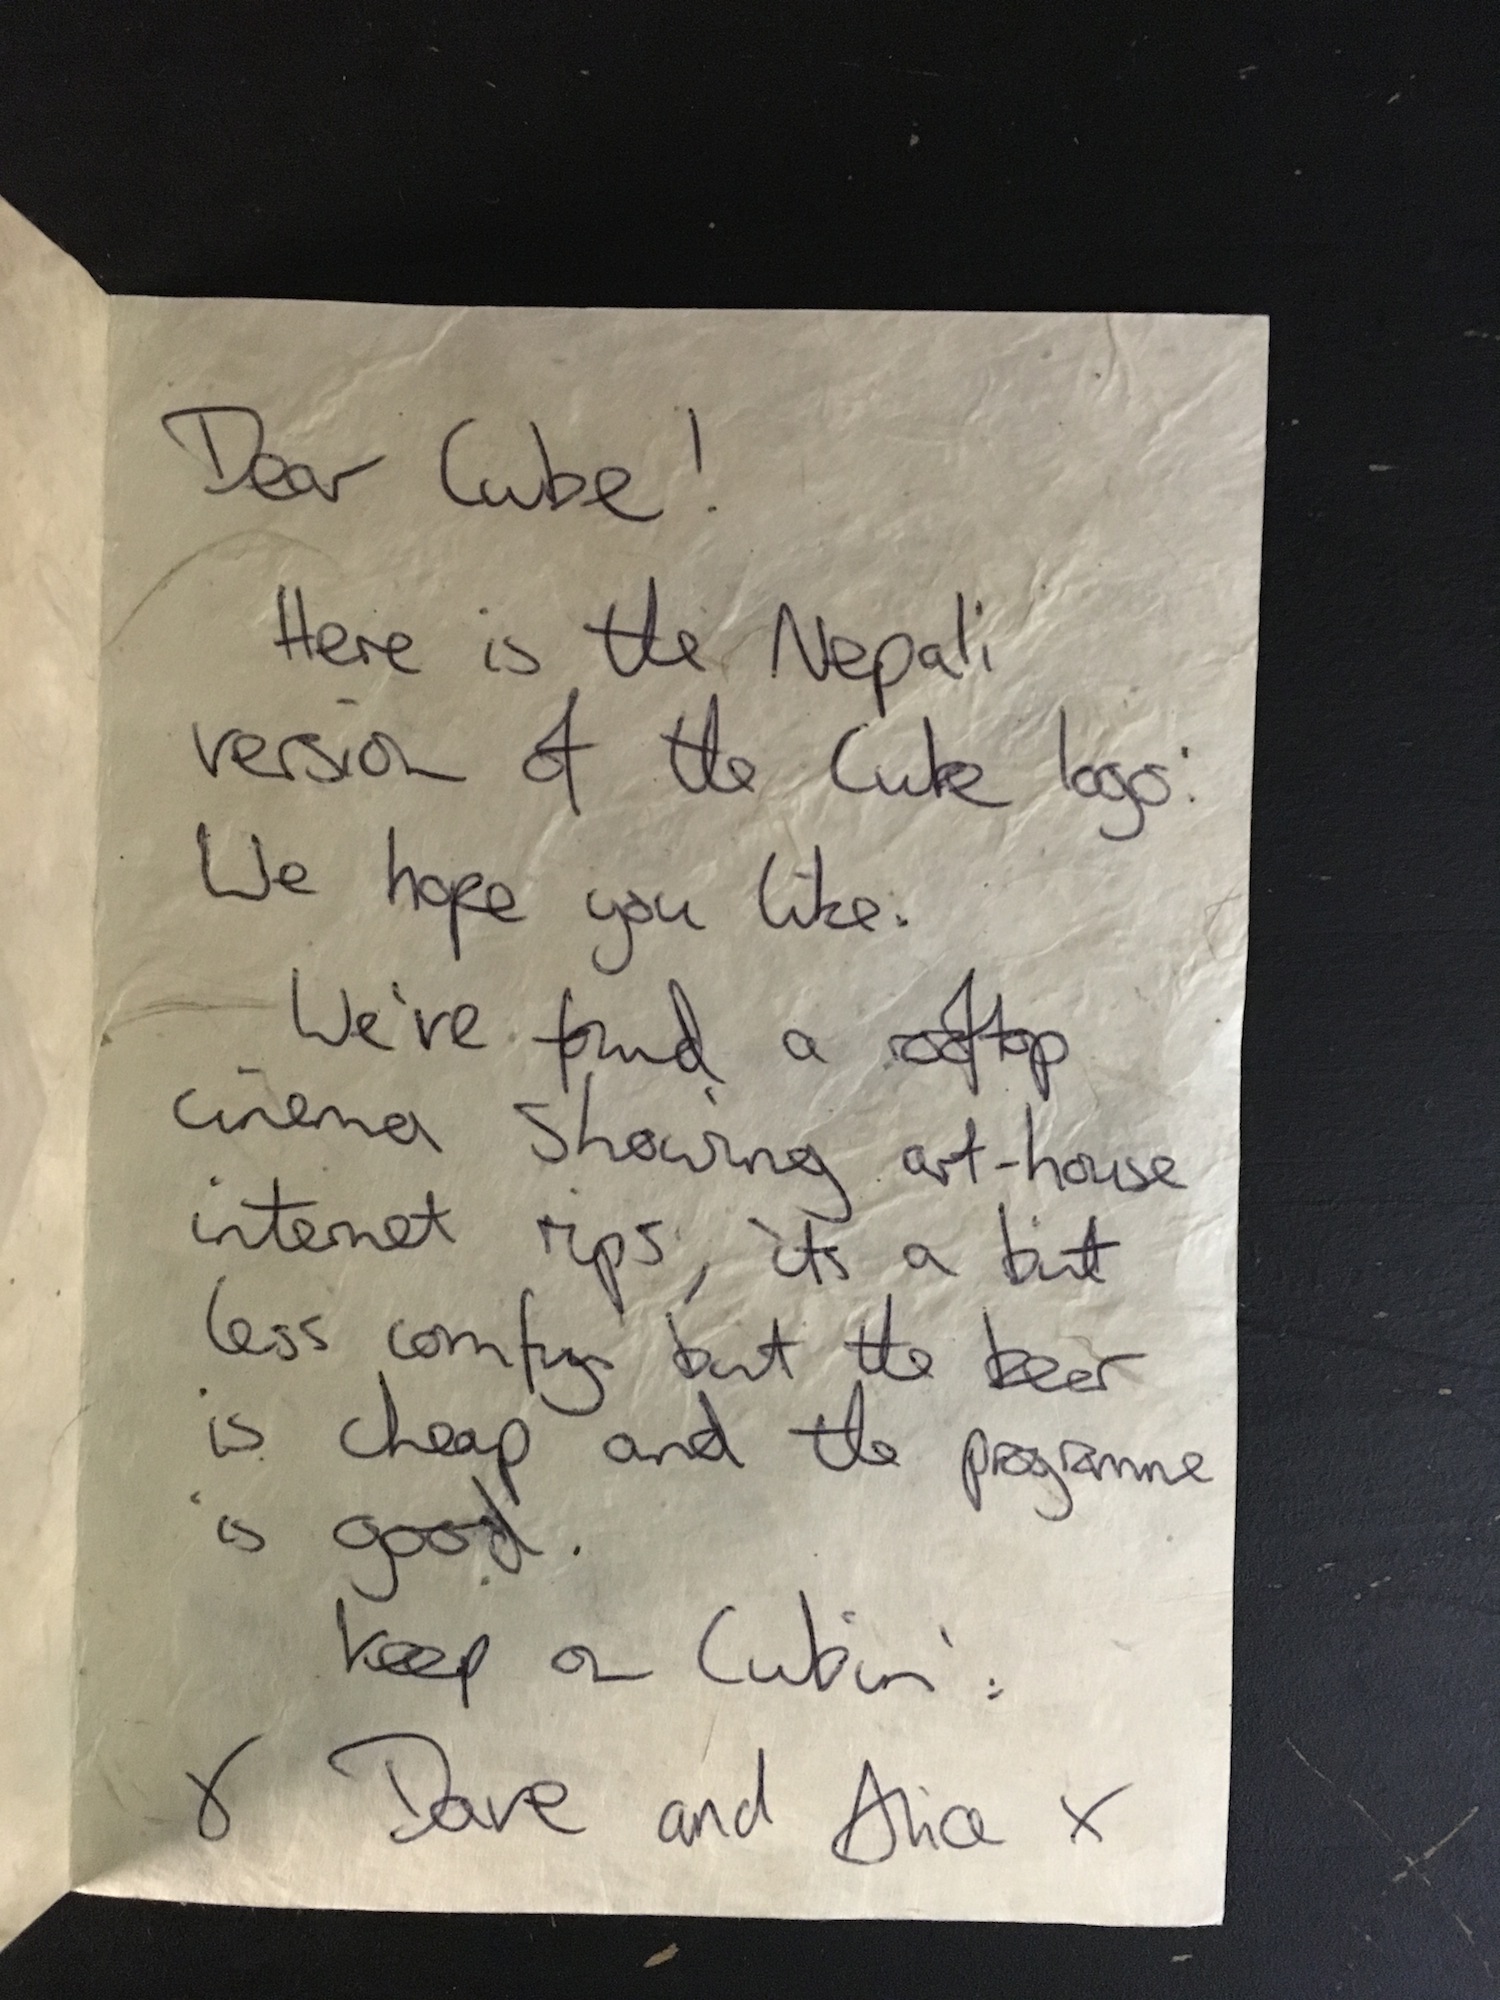 Dear Cube!
Here is the Nepali
version of the Cube logo.
We hope you like.
We've found a rooftop
cinema showing art-house
internet rips, its a bit
less comfy but the beer
is cheap and the programme
is good.
Keep on Cubin'.
x Dave and Alice x